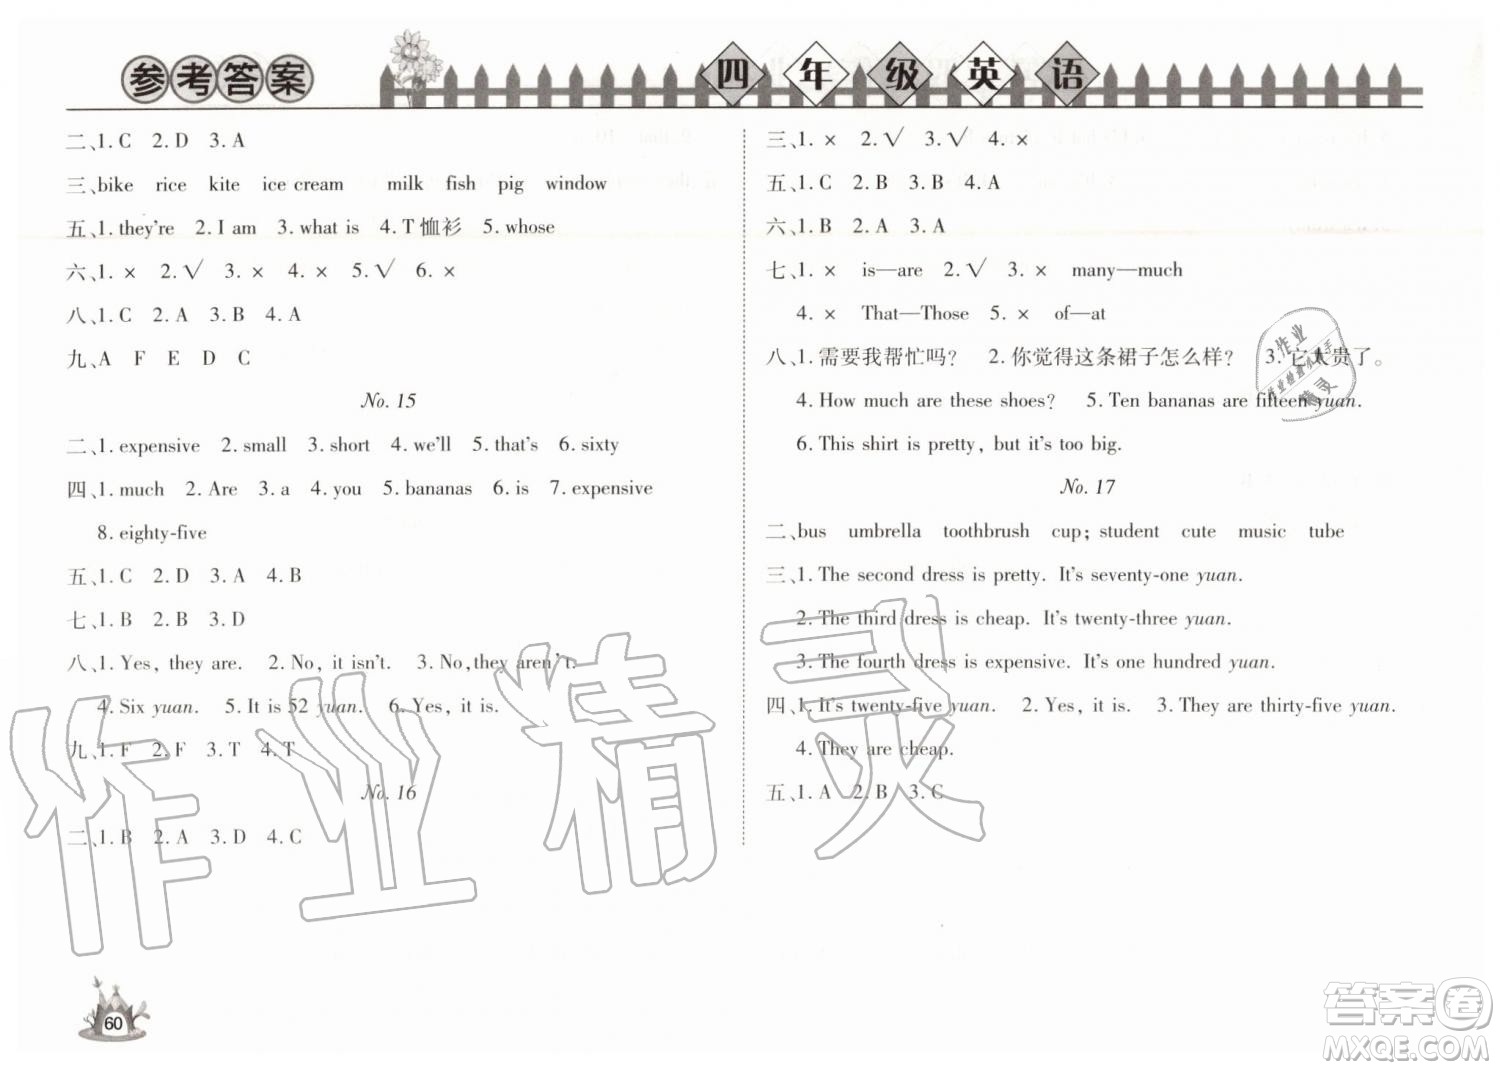 参考答案
四年级英语
二、1. C 2. D 3. A
三、bike rice kite ice cream milk fish pig window
五、1. they're 2. I am 3. what is 4. T恤衫 5. whose
六、1. × 2. √ 3. × 4. × 5. √ 6. ×
八、1. C 2. A 3. B 4. A
九、A F E D C
No. 15
二、1. expensive 2. small 3. short 4. we'll 5. that's 6. sixty
四、1. much 2. Are 3. a 4. you 5. bananas 6. is 7. expensive
8. eighty-five
五、1. C 2. D 3. A 4. B
七、1. B 2. B 3. D
八、1. Yes, they are. 2. No, it isn't. 3. No,they aren't.
4. Six yuan. 5. It is 52 yuan. 6. Yes, it is.
九、1. F 2. F 3. T 4. T
No. 16
二、1. B 2. A 3. D 4. C
三、1. × 2. √ 3. √ 4. ×
五、1. C 2. B 3. B 4. A
六、1. B 2. A 3. A
七、1. × is—are 2. √ 3. × many—much
4. × That—Those 5. × of—at
八、1. 需要我帮忙吗? 2. 你觉得这条裙子怎么样? 3. 它太贵了。
4. How much are these shoes? 5. Ten bananas are fifteen yuan.
6. This shirt is pretty, but it's too big.
No. 17
二、bus umbrella toothbrush cup; student cute music tube
三、1. The second dress is pretty. It's seventy-one yuan.
2. The third dress is cheap. It's twenty-three yuan.
3. The fourth dress is expensive. It's one hundred yuan.
四、1. It's twenty-five yuan. 2. Yes, it is. 3. They are thirty-five yuan.
4. They are cheap.
五、1. A 2. B 3. C
作业精灵
作业
作业检查小助手
精灵
60
答案圈
MXQE.COM